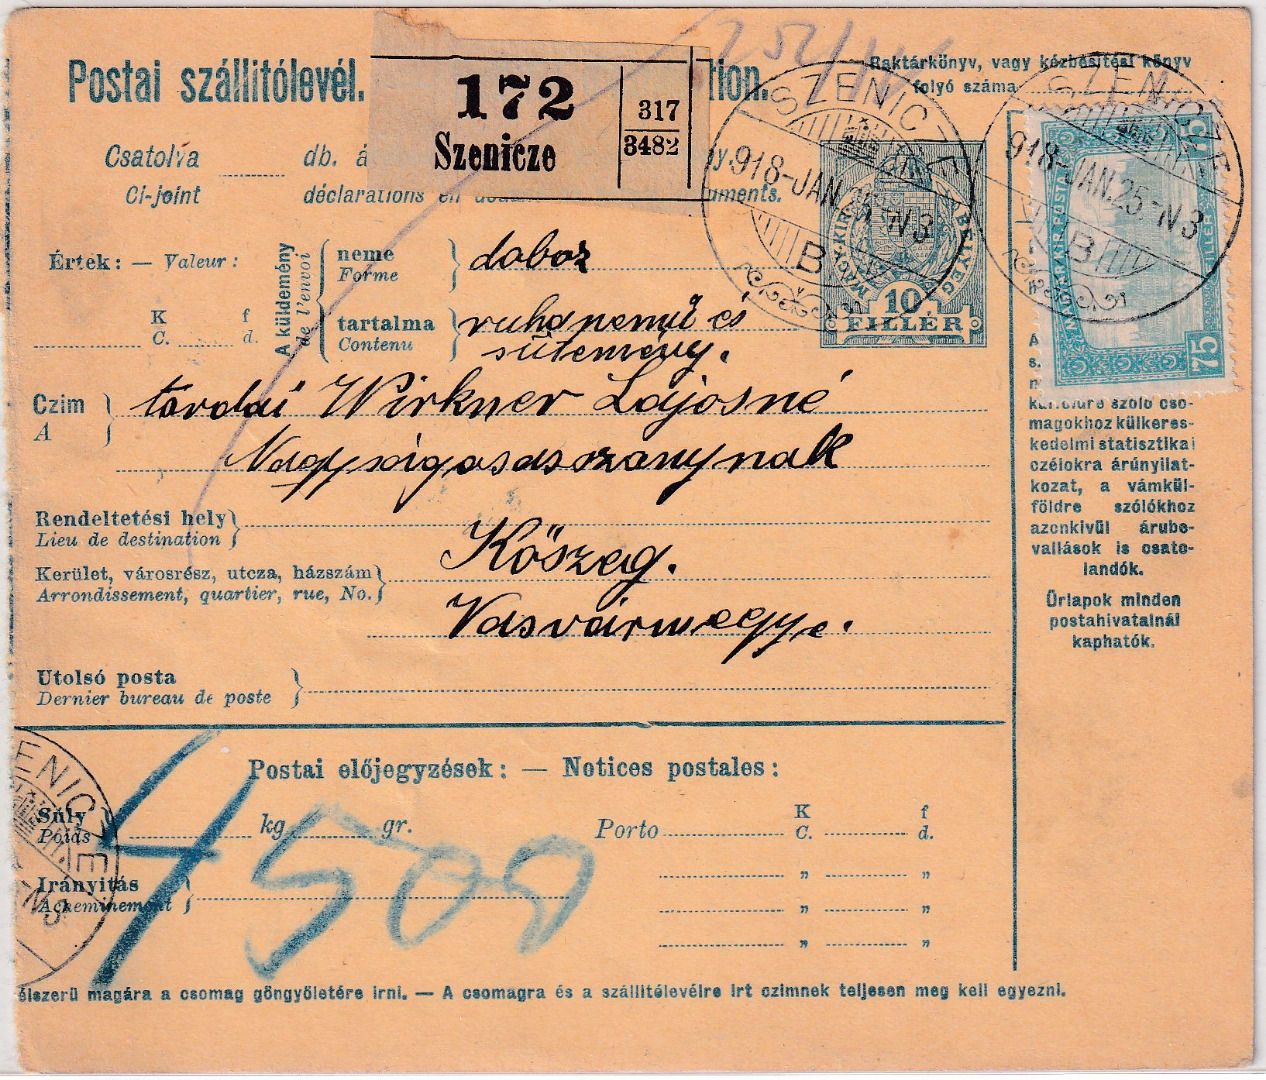 Postai szállitólevél.
172
Szenicze
317
3482
tion.
252/11
Raktárkönyv, vagy kézbesitési könyv
folyó száma
Csatolva db. á
Ci-joint déclarations en dou ments.
SZENICZE
918-JAN.25-N3
B
SZENICZE
918-JAN.25-N3
B
MAGY. KIR. BELYEG
10
FILLÉR
MAGYAR KIR. POSTA
75 FILLÉR 75
Érték: — Valeur:
K f
C. d.
A küldemény
de l'envoi
neme
Forme
doboz
tartalma
Contenu
ruhanemű és
sütemény.
Czim
A
tardai Wirkner Lajosné
Nagyságosasszonynak
Rendeltetési hely
Lieu de destination
Kőszeg.
Kerület, városrész, utcza, házszám
Arrondissement, quartier, rue, No.
Vasvármegye.
Utolsó posta
Dernier bureau de poste
szóló cso-
magokhoz külkeres-
kedelmi statisztikai
czélokra árúnyilat-
kozat, a vámkül-
földre szólókhoz
azonkivül árube-
vallások is csato-
landók.
Űrlapok minden
postahivatalnál
kaphatók.
Postai előjegyzések: — Notices postales:
ENICZE
N3
Súly
Poids
kg. gr.
4500
Porto
K f
C. d.
" "
" "
" "
Irányitás
Acheminement
élszerü magára a csomag göngyöletére irni. — A csomagra és a szállitólevélre irt czimnek teljesen meg kell egyezni.